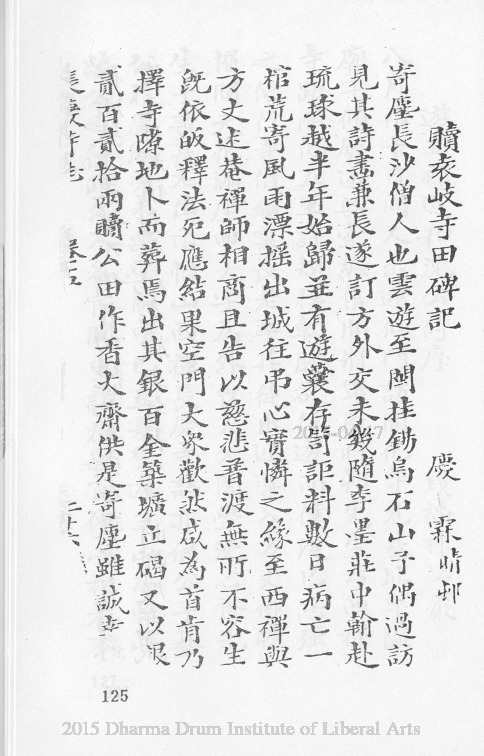 贖袁岐寺田碑記 慶霖晴邨
寄塵長沙僧人也雲遊至閩挂錫烏石山予偶過訪
見其詩畫兼長遂訂方外交未幾隨李墨莊中翰赴
琉球越半年始歸並有遊囊存笥詎料數日病亡一
棺荒寄風雨漂摇出城往弔心實憐之緣至西禪與
方丈述菴禪師相商且告以慈悲普渡無所不容生
既依皈釋法死應結果空門大衆歡然咸為首肯乃
擇寺隙地卜而葬焉出其銀百金築壙立碣又以銀
貳百貳拾兩贖公田作香火齋供是寄塵雖誠
長慶寺志 卷五 二十六
125
2015 Dharma Drum Institute of Liberal Arts